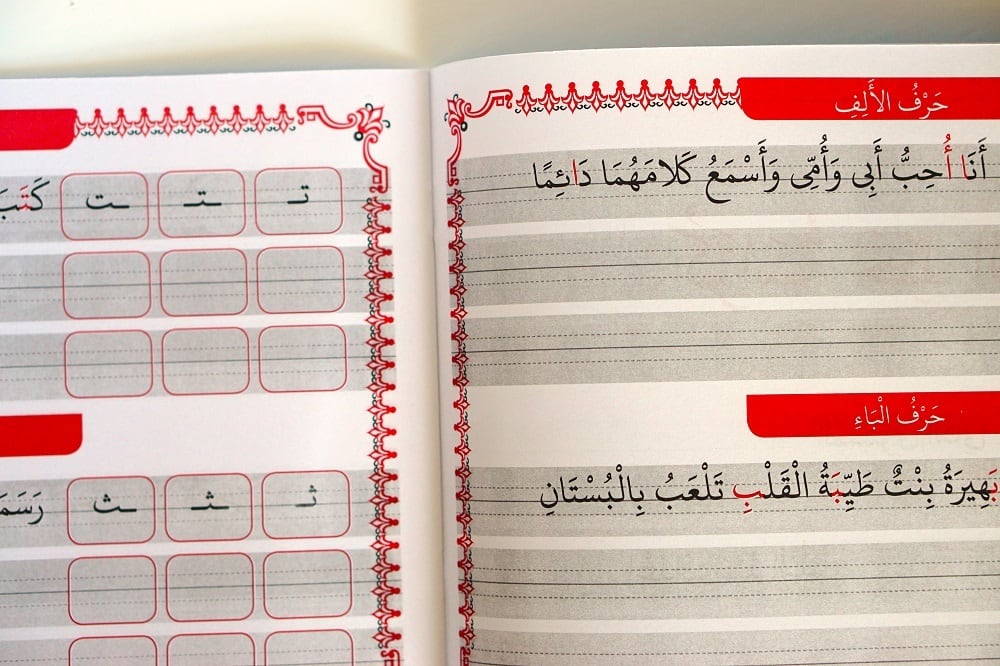 حَرْفُ الأَلِفِ
أَنَا أُحِبُّ أَبِى وَأُمِّى وَأَسْمَعُ كَلامَهُمَا دَائِمًا
حَرْفُ الْبَاءِ
بَهِيرَةُ بِنْتٌ طَيِّبَةُ الْقَلْبِ تَلْعَبُ بِالْبُسْتَانِ
تـ ـتـ ـت
ثـ ـثـ ـث